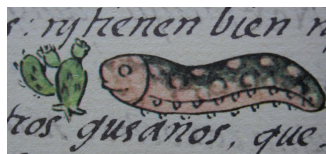 : ny tienen bien
tros gusaños, que